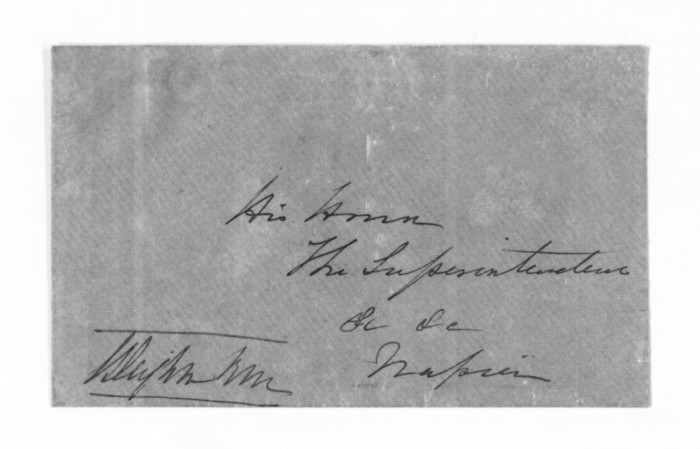 His Honor
The Superintendent
&c &c
Napier